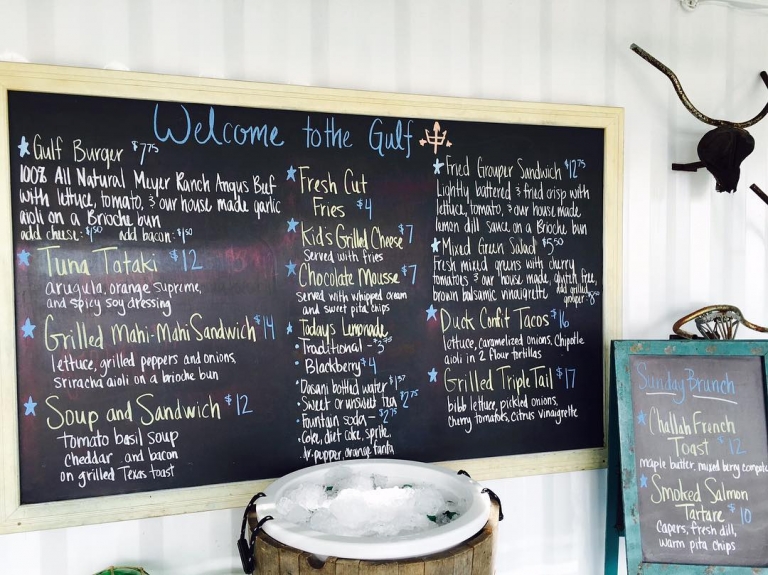 Welcome to the Gulf
Gulf Burger $7.75
100% All Natural Meyer Ranch Angus Beef
with lettuce, tomato, & our house made garlic
aioli on a Brioche bun
add cheese: $1.50 add bacon: $1.50
Tuna Tataki $12
arugula, orange supreme,
and spicy soy dressing
Grilled Mahi-Mahi Sandwich $14
lettuce, grilled peppers and onions,
sriracha aioli on a brioche bun
Soup and Sandwich $12
tomato basil soup
cheddar and bacon
on grilled Texas toast
Fresh Cut
Fries $4
Kid's Grilled Cheese $7
Served with fries
Chocolate Mousse $7
Served with whipped cream
and sweet pita chips
Today's Lemonade
Traditional - $3.75
Blackberry $4
Dasani bottled water $1.50
Sweet or unsweet tea $2.75
Fountain soda - $2.75
Coke, diet coke, sprite,
dr. pepper, orange fanta
Fried Grouper Sandwich $12.75
Lightly battered & fried crisp with
lettuce, tomato, & our house made
lemon dill sauce on a Brioche bun
Mixed Green Salad $5.50
Fresh mixed greens with cherry
tomatoes & our house made, gluten free,
brown balsamic vinaigrette add grilled
grouper $8
Duck Confit Tacos $16
lettuce, caramelized onions, Chipotle
aioli in 2 Flour tortillas
Grilled Triple Tail $17
bibb lettuce, pickled onions,
cherry tomatoes, citrus vinaigrette
Sunday Brunch
Challah French
Toast $12
maple butter, mixed berry
Smoked Salmon
Tartare $10
Capers, fresh dill,
warm pita chips